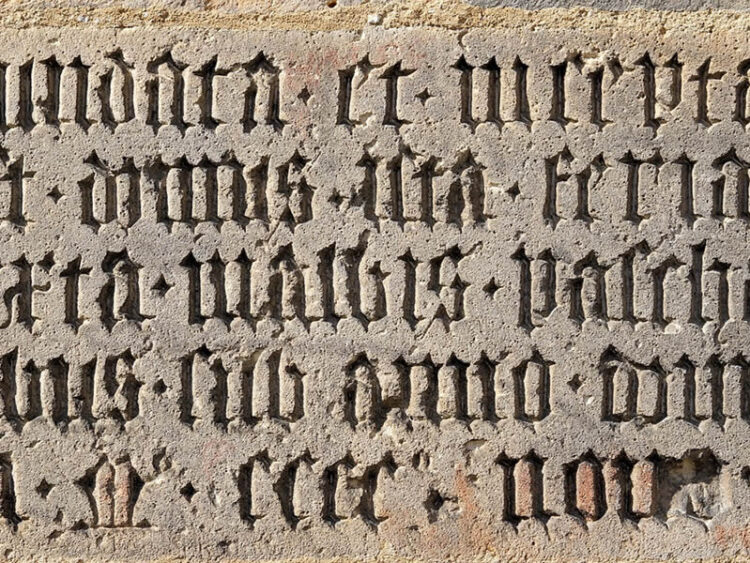 undata · et · incepta
it · domus · ista · feria
exta · in albis · pasch
bus · sub · anno · dom
M · cccc · nov